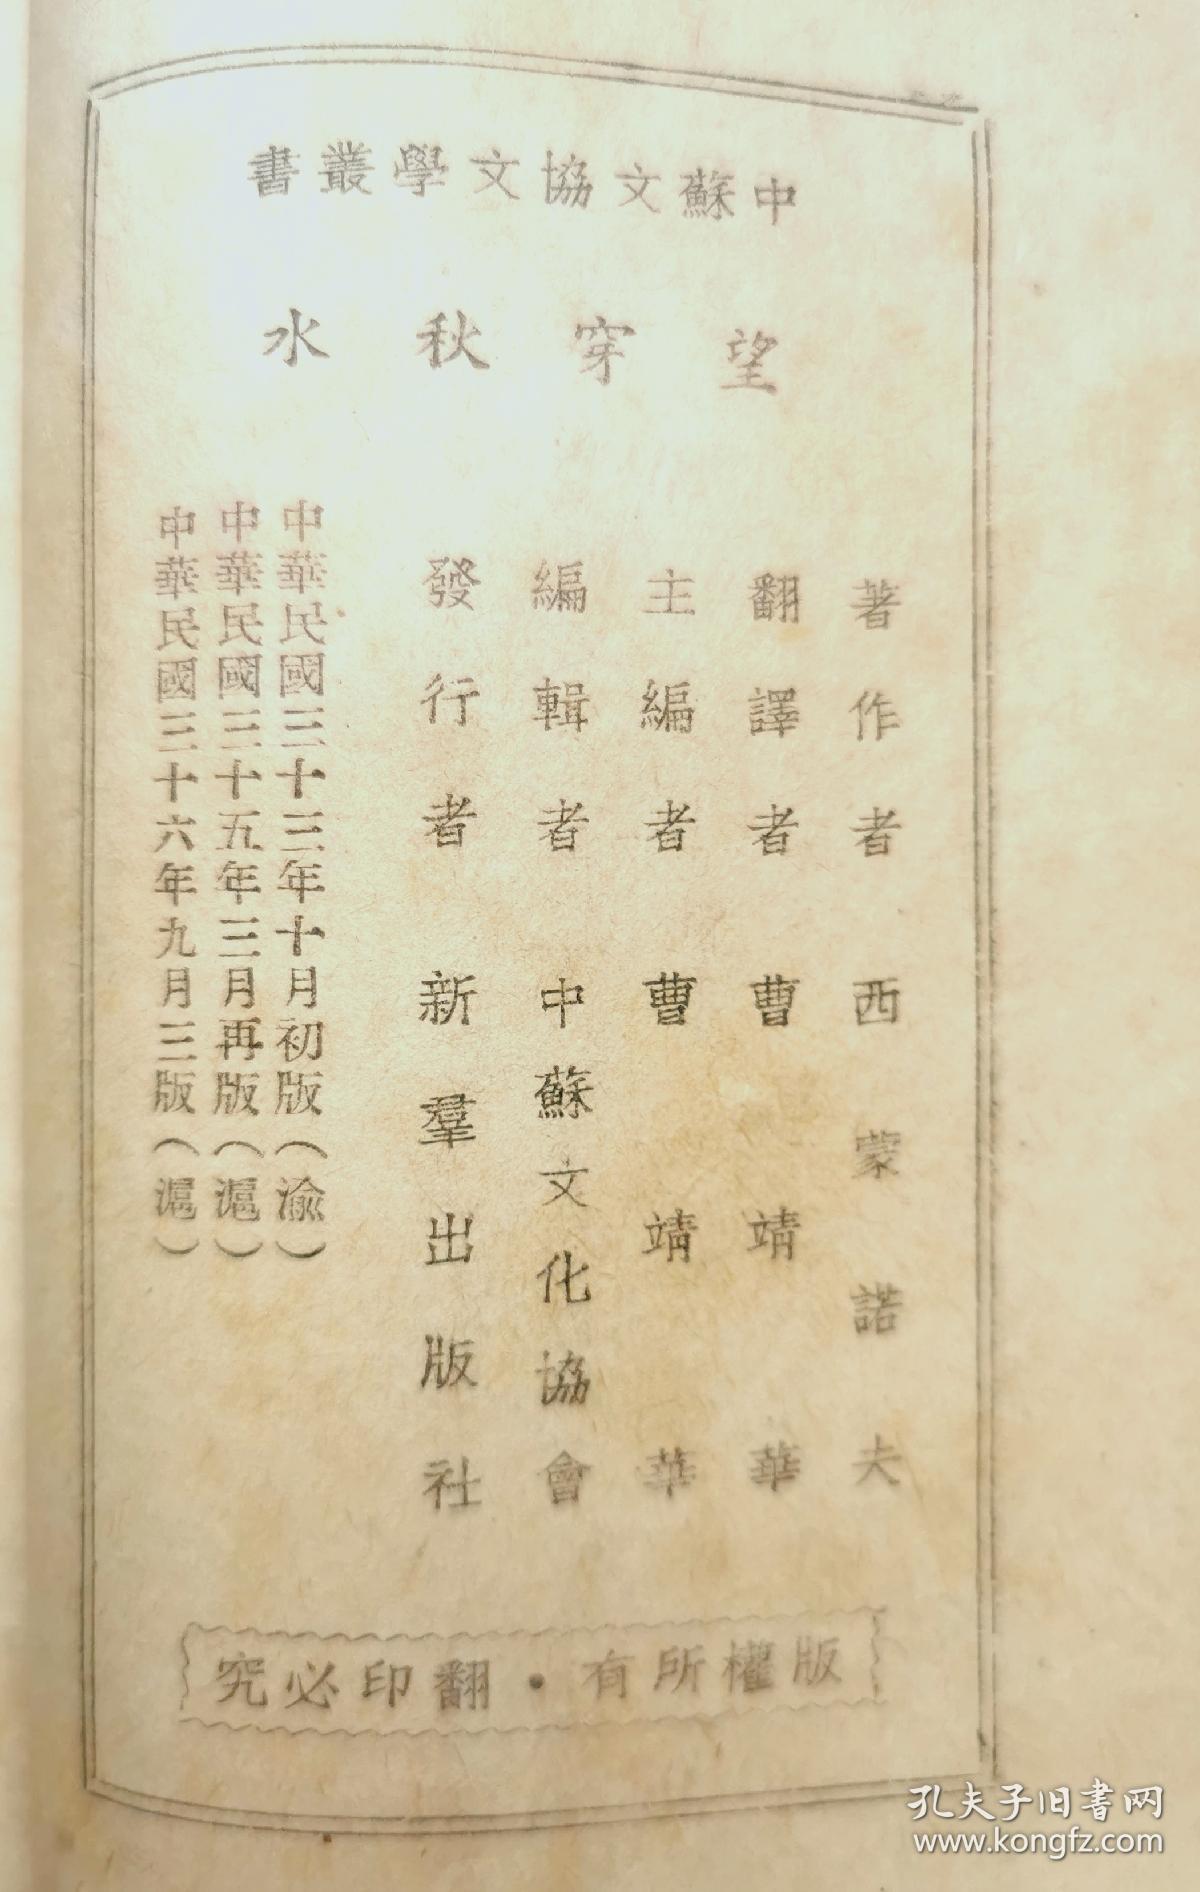 中蘇文協文學叢書
望穿秋水
著作者 西蒙諾夫
翻譯者 曹靖華
主編者 曹靖華
編輯者 中蘇文化協會
發行者 新羣出版社
中華民國三十三年十月初版（渝）
中華民國三十五年三月再版（滬）
中華民國三十六年九月三版（滬）
版權所有·翻印必究
孔夫子旧書网
www.kongfz.com